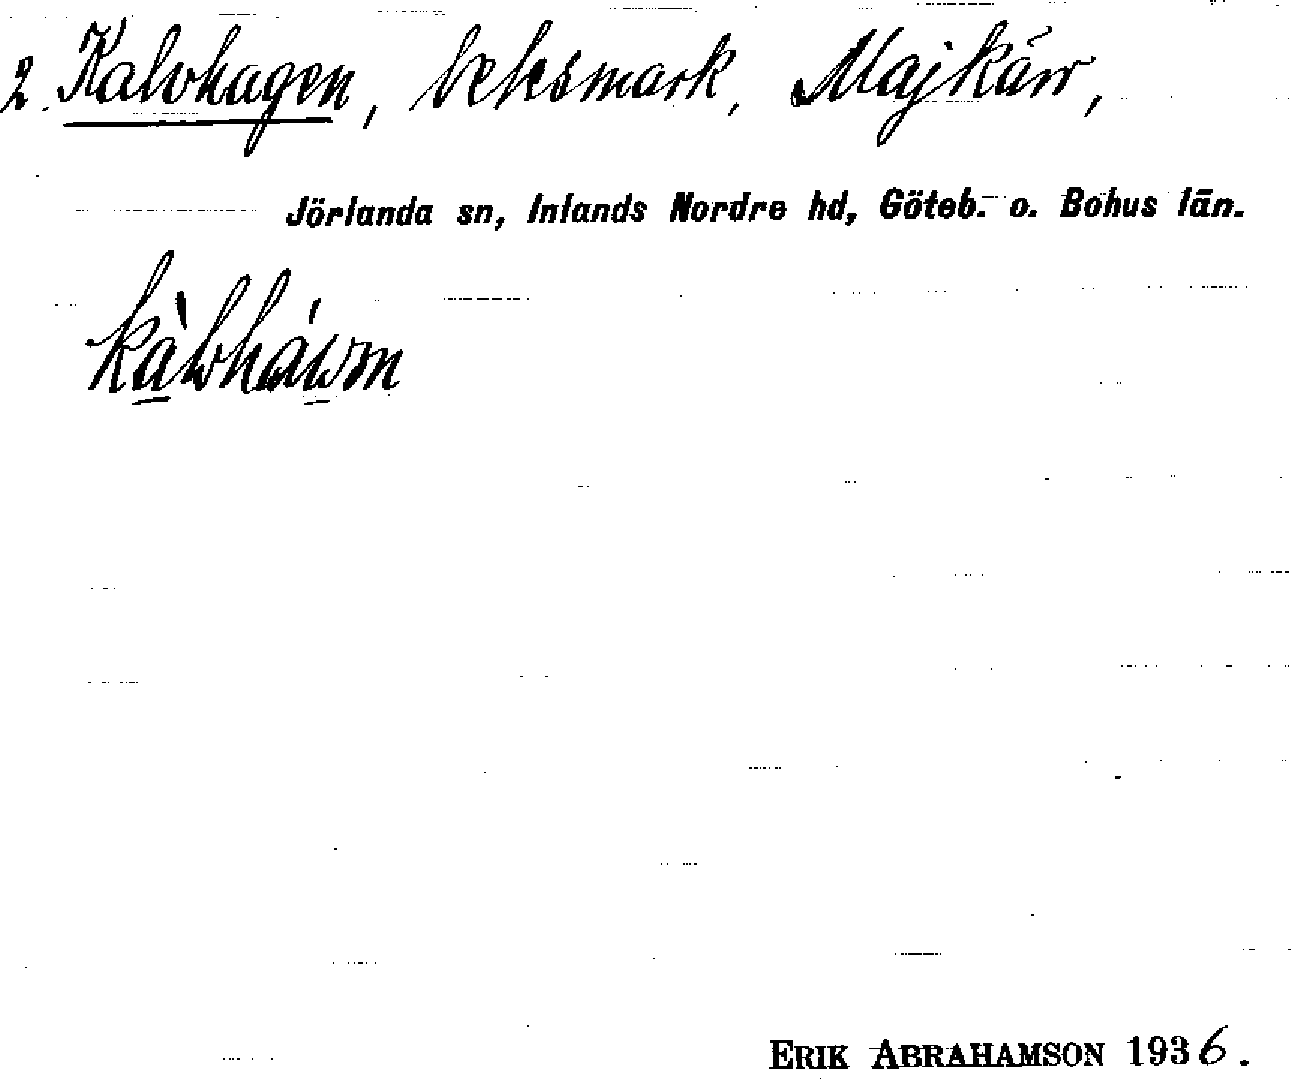 2. Kalvhagen, betesmark, Majkärr,
Jörlanda sn, Inlands Nordre hd, Göteb. o. Bohus län.
ERIK ABRAHAMSON 1936.